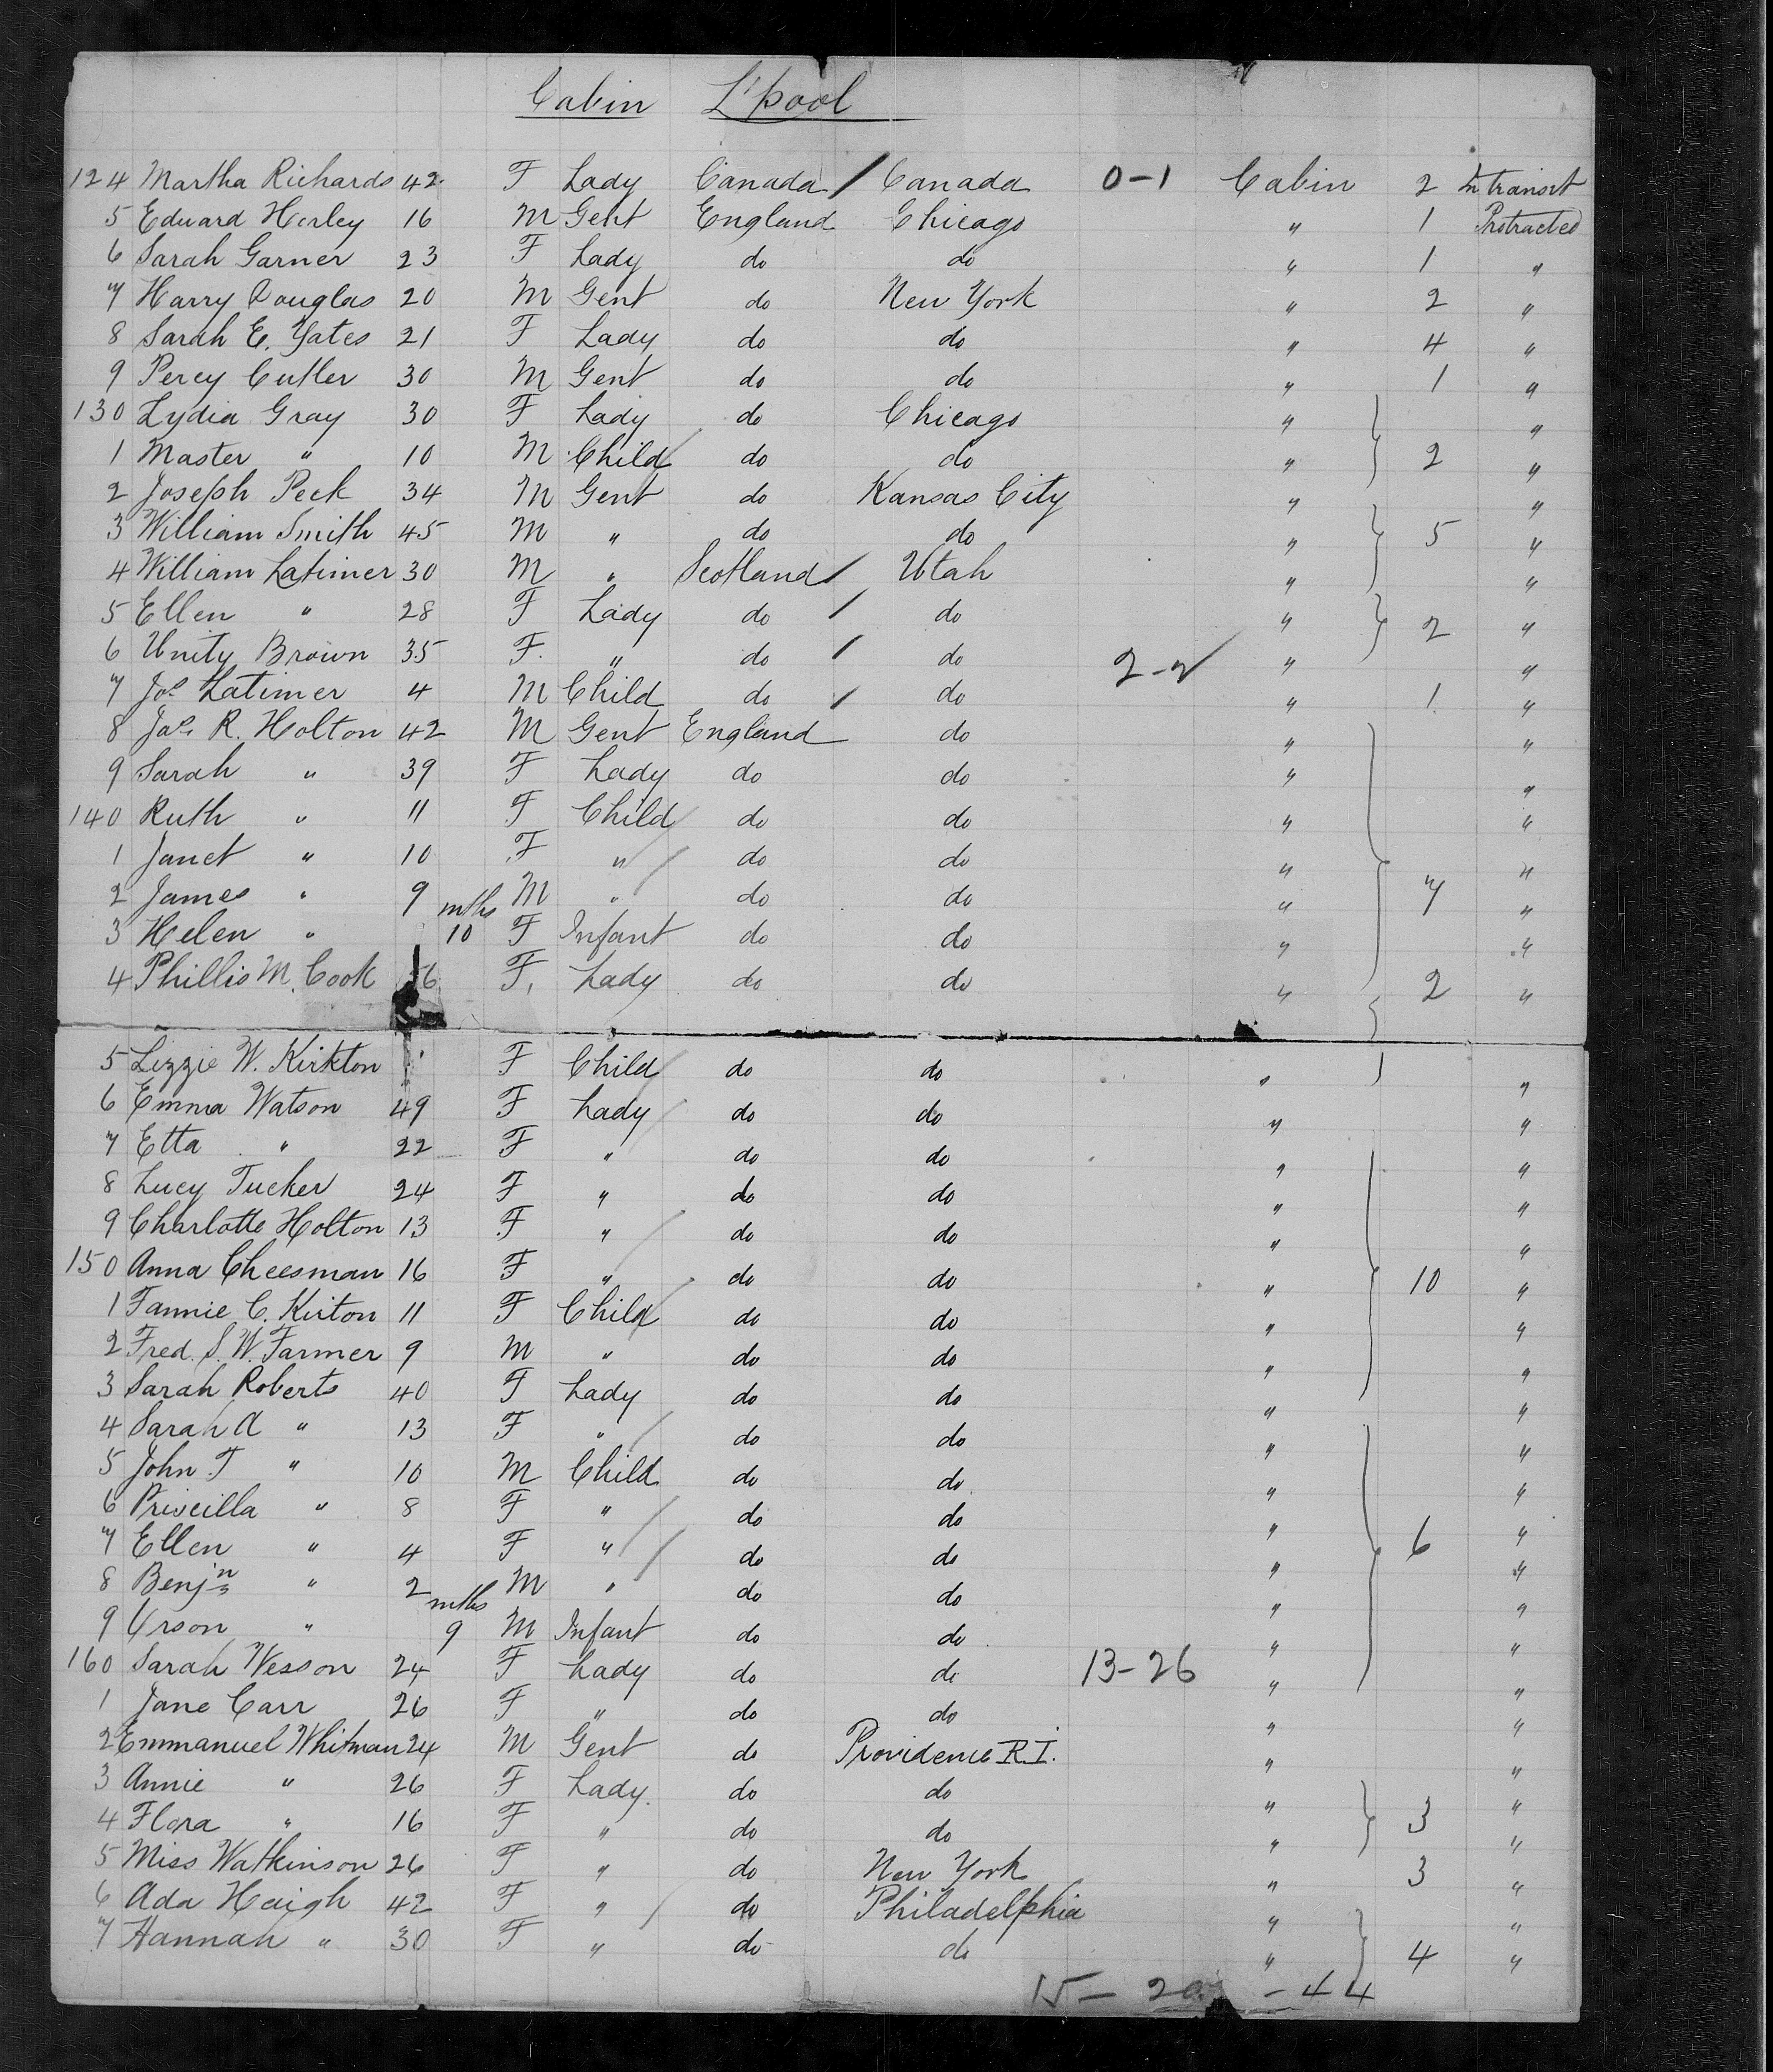 Cabin L'pool
124 Martha Richards 42 F Lady Canada / Canada 0-1 Cabin 2 In transit
5 Edward Horley 16 M Gent England Chicago " 1 Protracted
6 Sarah Garner 23 F Lady do do " 1 "
7 Harry Douglas 20 M Gent do New York " 2 "
8 Sarah E. Yates 21 F Lady do do " 4 "
9 Percy Cutler 30 M Gent do do " 1 "
130 Lydia Gray 30 F Lady do Chicago " "
1 Master " 10 M Child do do " 2 "
2 Joseph Peck 34 M Gent do Kansas City " "
3 William Smith 45 M " do do " 5 "
4 William Latimer 30 M " Scotland / Utah " "
5 Ellen " 28 F Lady do / do " 2 "
6 Unity Brown 35 F. " do / do 2-2 " "
7 Jos Latimer 4 M Child do / do " 1 "
8 Jas. R. Holton 42 M Gent England do " "
9 Sarah " 39 F Lady do do " "
140 Ruth " 11 F Child do do " "
1 Janet " 10 F " do do " "
2 James " 9 M " do do " 7 "
3 Helen " mths 10 F Infant do do " "
4 Phillis M. Cook 56 F, Lady do do " 2 "
5 Lizzie W. Kirkton F Child do do " "
6 Emma Watson 49 F Lady do do " "
7 Etta " 22 F " do do " "
8 Lucy Tucker 24 F " do do " "
9 Charlotte Holton 13 F " do do " "
150 Anna Cheesman 16 F " do do " 10 "
1 Fannie C. Kirton 11 F Child do do " "
2 Fred. S. W. Farmer 9 M " do do " "
3 Sarah Roberts 40 F Lady do do " "
4 Sarah A " 13 F " do do " "
5 John T " 10 M Child do do " "
6 Priscilla " 8 F " do do " "
7 Ellen " 4 F " do do " 6 "
8 Benjn " 2 M " do do " "
9 Orson " mths 9 M Infant do do " "
160 Sarah Wesson 24 F Lady do do 13-26 " "
1 Jane Carr 26 F " do do " "
2 Emmanuel Whitman 24 M Gent do Providence R.I. " "
3 Annie " 26 F Lady. do do " "
4 Flora " 16 F " do do " 3 "
5 Miss Watkinson 26 F " do New York " 3 "
6 Ada Haigh 42 F " do Philadelphia " "
7 Hannah " 30 F " do do " 4 "
15 - 20 - 44